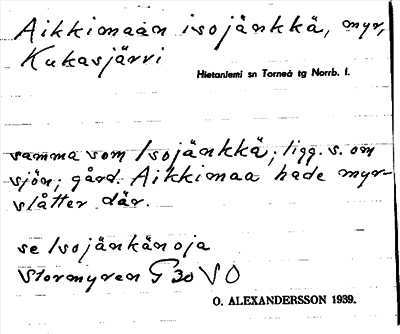 Aikkimaan isojänkkä, myr,
Kukasjärvi
Hietaniemi sn Torneå tg Norrb. l.
samma som Isojänkkä; ligg. s. om
sjön; gård. Aikkimaa hade myr-
slåtter där.
se Isojänkänoja
Stormyren G 30 V O
O. ALEXANDERSSON 1939.